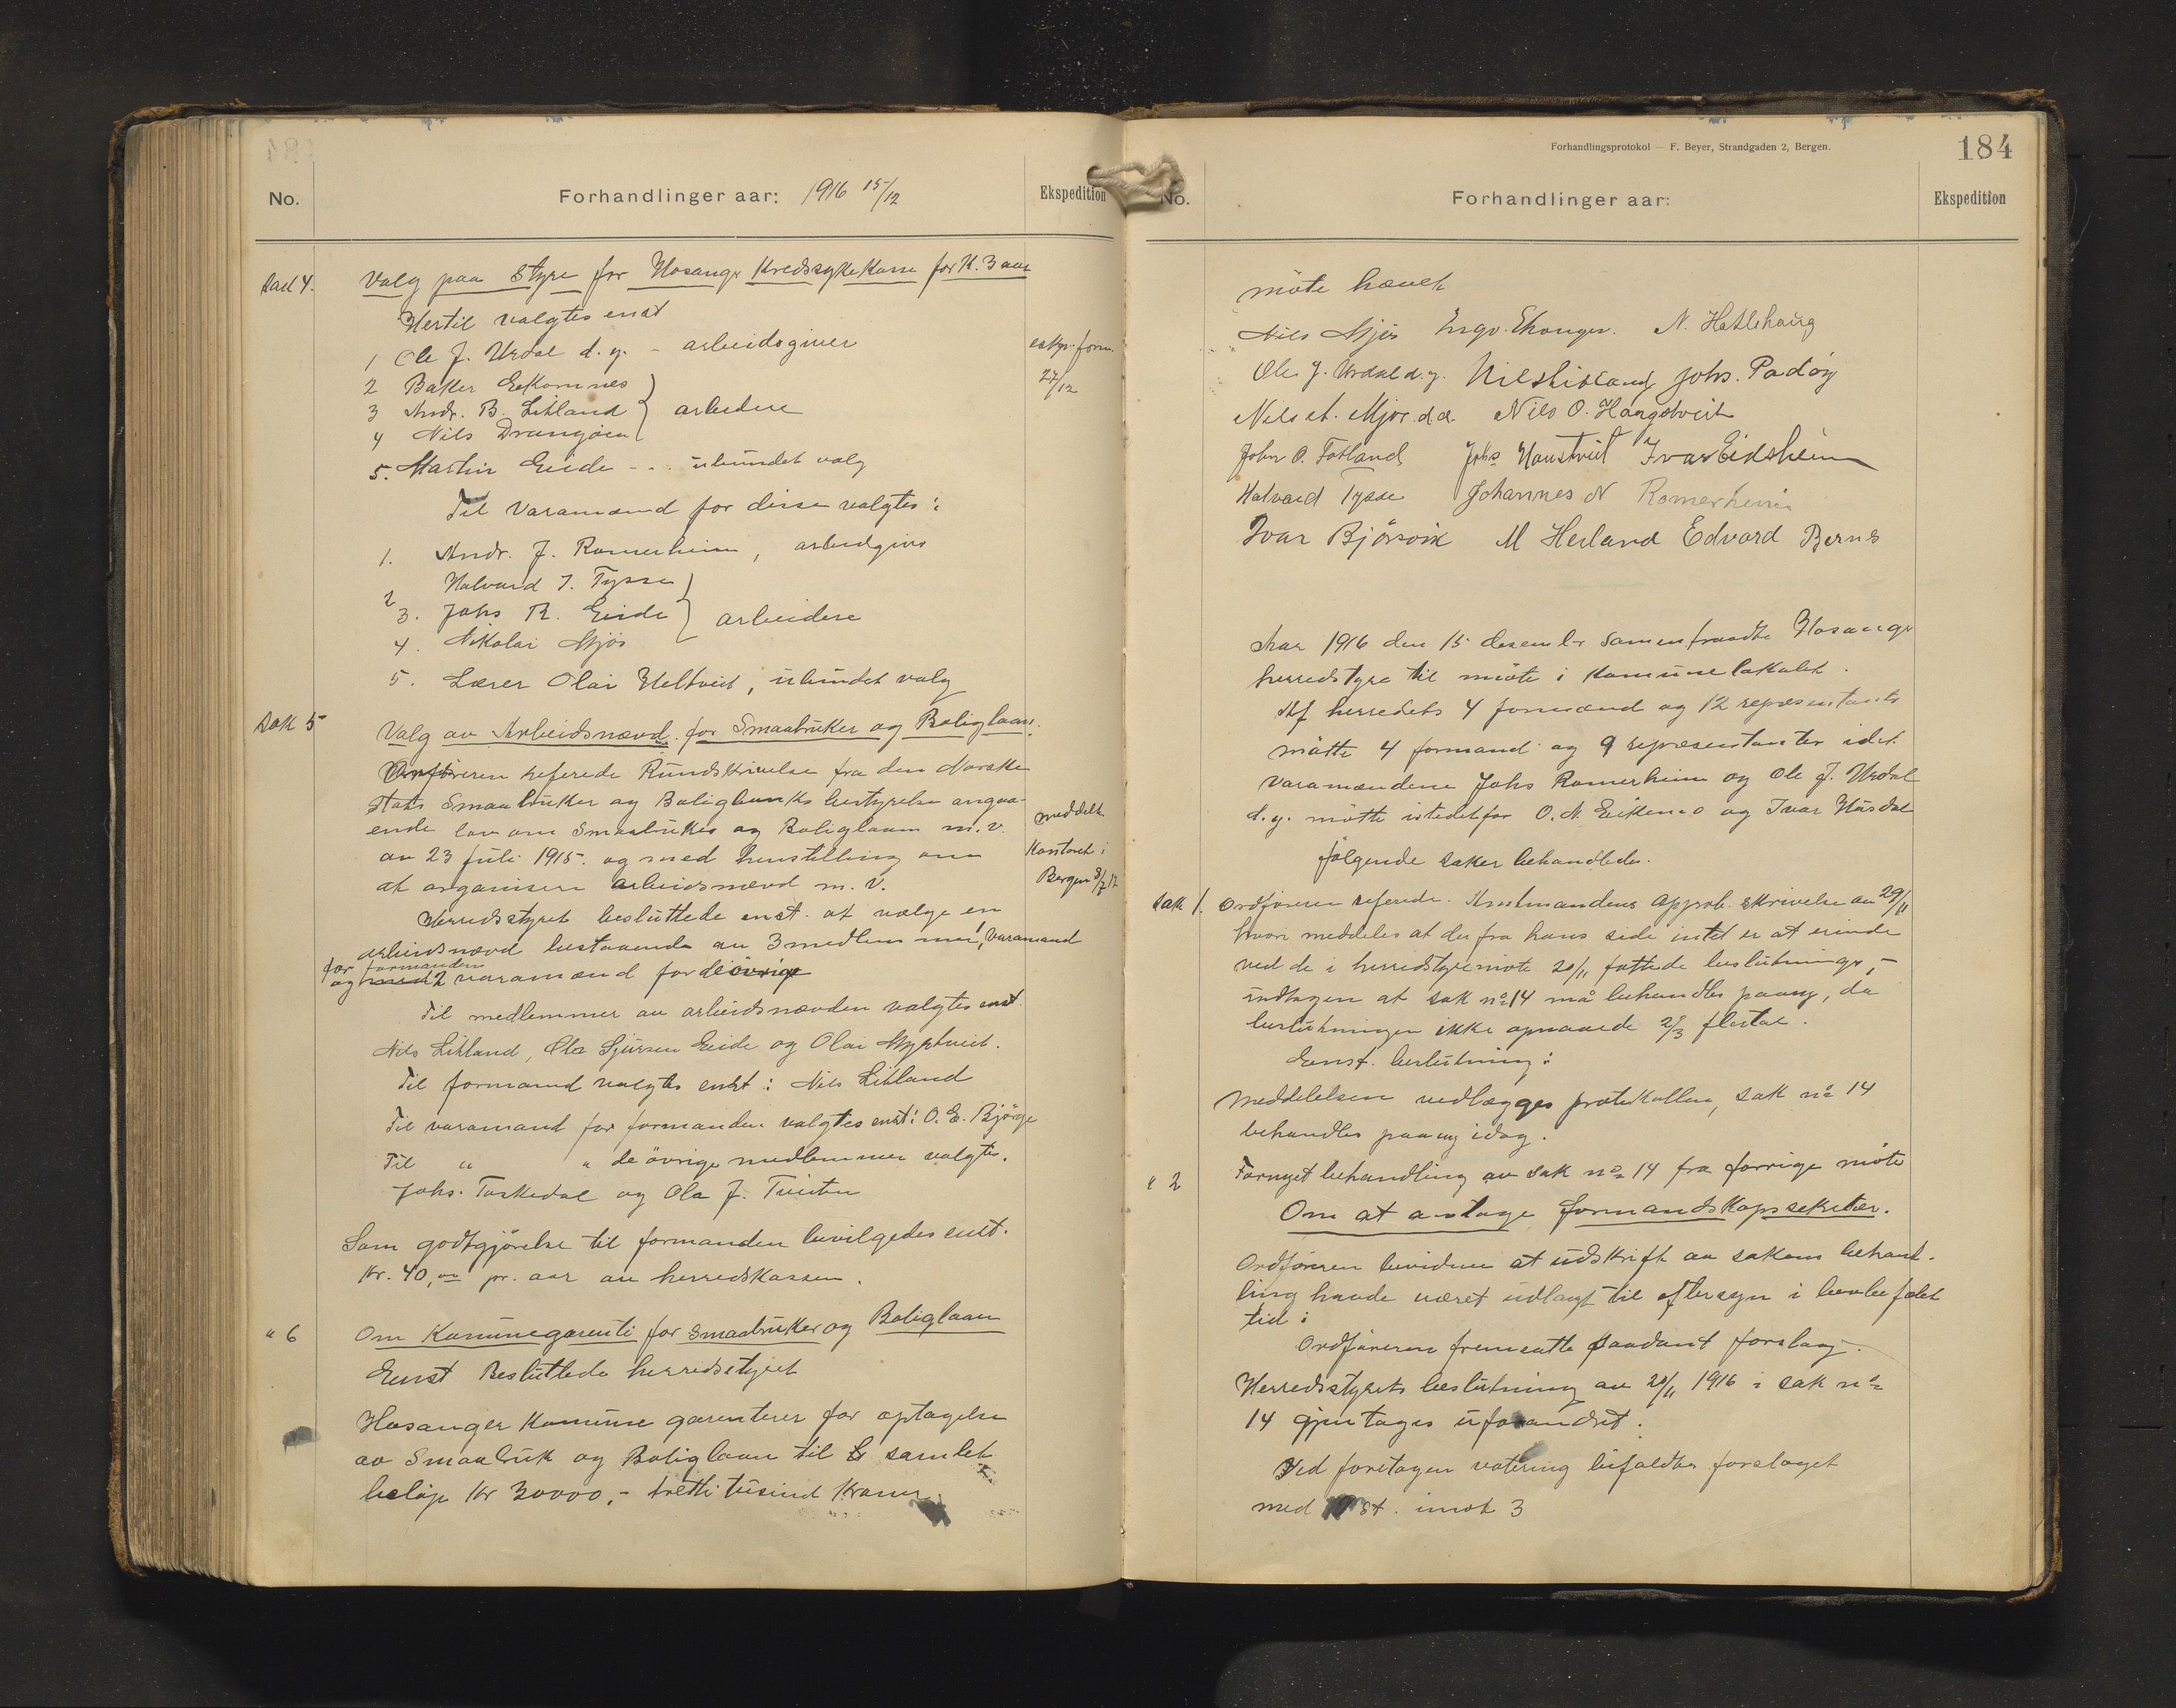 No.
Forhandlinger aar: 1916 15/12
Ekspedition
Sak 4. Valg paa Styre for Hosanger Kredssykekasse for K. 3 aar
Hertil valgtes enst
1 Ole J. Urdal d. y. - arbeidsgiver
eksp. form.
27/12
2 Baker Eekomnes
3 Andr. B. Litland } arbeidere
4 Nils Drangöen
5. Martin Eide - .. ubundet valg
Til Varamænd for disse valgtes:
1. Andr. J. Romerheim, arbeidgiver
2 Halvard J. Tysse
3. Johs R. Eide } arbeidere
4. Nikolai Mjös
5. Lærer Olai Heltveit, ubundet valg
Sak 5 Valg av Arbeidsnævd for Smaabruker og Boliglaan.
Ordföreren referede Rundskrivelse fra den Norske
Stats Smaabruker og Boligbanks bestyrelse angaa-
ende lov om Smaabruker og Boliglaan m. v.
meddelt
av 23 juli 1915. og med henstilling om
Kontoret i
at organisere arbeidsnævd m. v.
Bergen 3/7 17
Herredsstyret besluttede enst. at vælge en
arbeidsnævd bestaaende av 3 medlemmer, varamand
for formanden
og med 2 varamænd for de övrige
Til medlemmer av arbeidsnævden valgtes enst
Nils Litland, Ola Sjursen Eide og Olai Myktveit.
Til formand valgtes enst: Nils Litland
Til varamand for formanden valgtes enst: O. E. Bjørge
Til " " de övrige medlemmer valgtes.
Johs. Toskedal og Ola J. Tveiten
Som godtgjörelse til formanden bevilgedes enst.
Kr. 40,00 pr. aar av herredskassen.
" 6 Om Kommunegaranti for Smaabruker og Boliglaan
Enst Besluttede herredsstyret
Hosanger Kommune garenterer for optagelse
av Smaabruk og Boliglaan til et samlet
belöp Kr 30000,- tretti tusind Kroner
Forhandlingsprotokol — F. Beyer, Strandgaden 2, Bergen.
184
No.
Forhandlinger aar:
Ekspedition
möte hævet
Nils Mjös Ingv. Ekanger. N. Hatlehaug
Ole J. Urdal d. y. Nils Litland Johs. Padøy
Nils A. Mjös. d. æ. Nils O. Haugstveit
John O. Fotland Johs Haustveit Ivar Eidsheim
Halvard Tysse Johannes N Romerheim
Ivar Bjørsvik M Herland Edvard Bernes
Aar 1916 den 15 desember samenfraadte Hosanger
herredstyre til möte i Komunelokalet.
Af herredets 4 formænd og 12 representanter
mötte 4 formand og 9 representanter idet
varamændene Johs Romerheim og Ole J. Urdal
d. y. mötte istedetfor O. N. Eikemo og Ivar Häsdal
fölgende saker behandledes.
Sak 1. Ordföreren referede. Amtmandens approb. skrivelse av 29/11
hvori meddeles at der fra hans side intet er at erindre
ved de i herredstyremöte 20/11 fattede beslutninger,-
undtagen at sak no 14 må behandles paany, da
beslutningen ikke opnaaede 2/3 flertal.
Enst. beslutning:
Meddelelsen vedlægges protokollen, sak no 14
behandles paany idag.
" 2 Fornyet behandling av sak no 14 fra forrige möte
Om at antage formandskapssekretær.
Ordföreren bevidnet at udskrift av sakens behand-
ling havde været udlagt til eftersyn i lovbefalet
tid:
Ordföreren fremsatte saadant forslag.
Herredsstyrets beslutning av 20/11 1916 i sak no
14 gjentages uforandret.
Ved foretagen votering bifaldtes forslaget
med st. imot 3